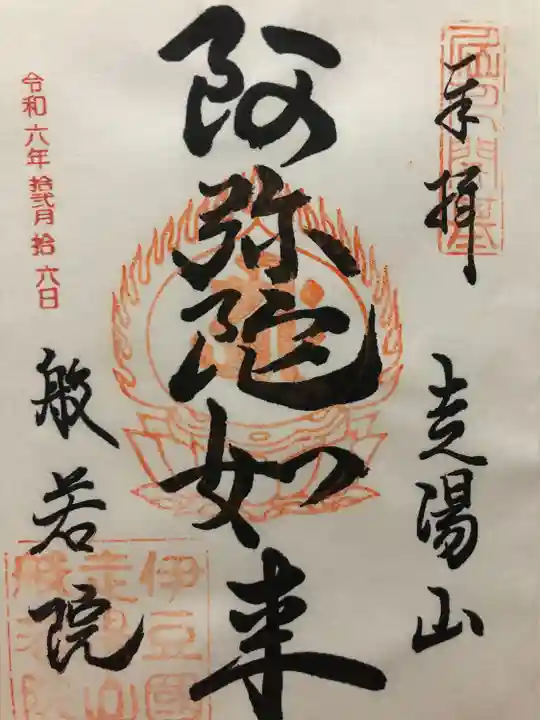 奉拝
走陽山
阿弥陀如来
令和六年拾弐月拾六日
般若院
伊豆國
走陽山
般若院